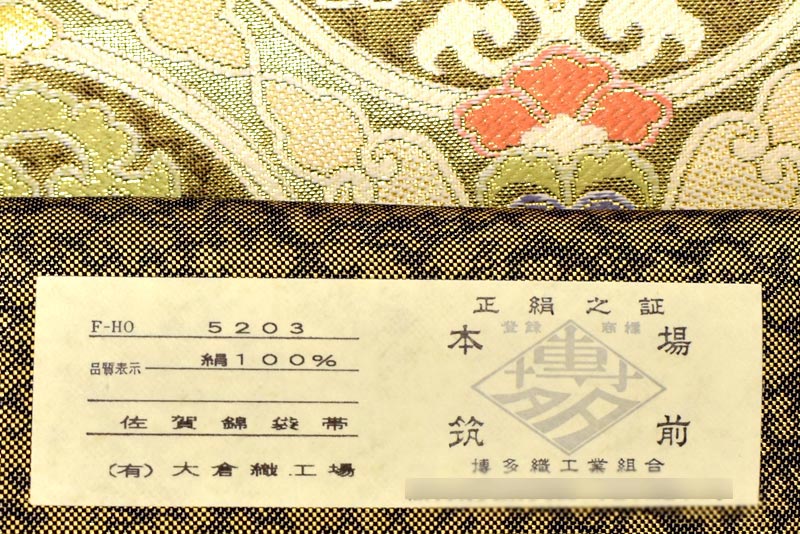 F-HO 5203
品質表示 絹100%
佐賀錦袋帯
(有)大倉織工場
正絹之証
登録 商標
本 場
博多
筑 前
博多織工業組合